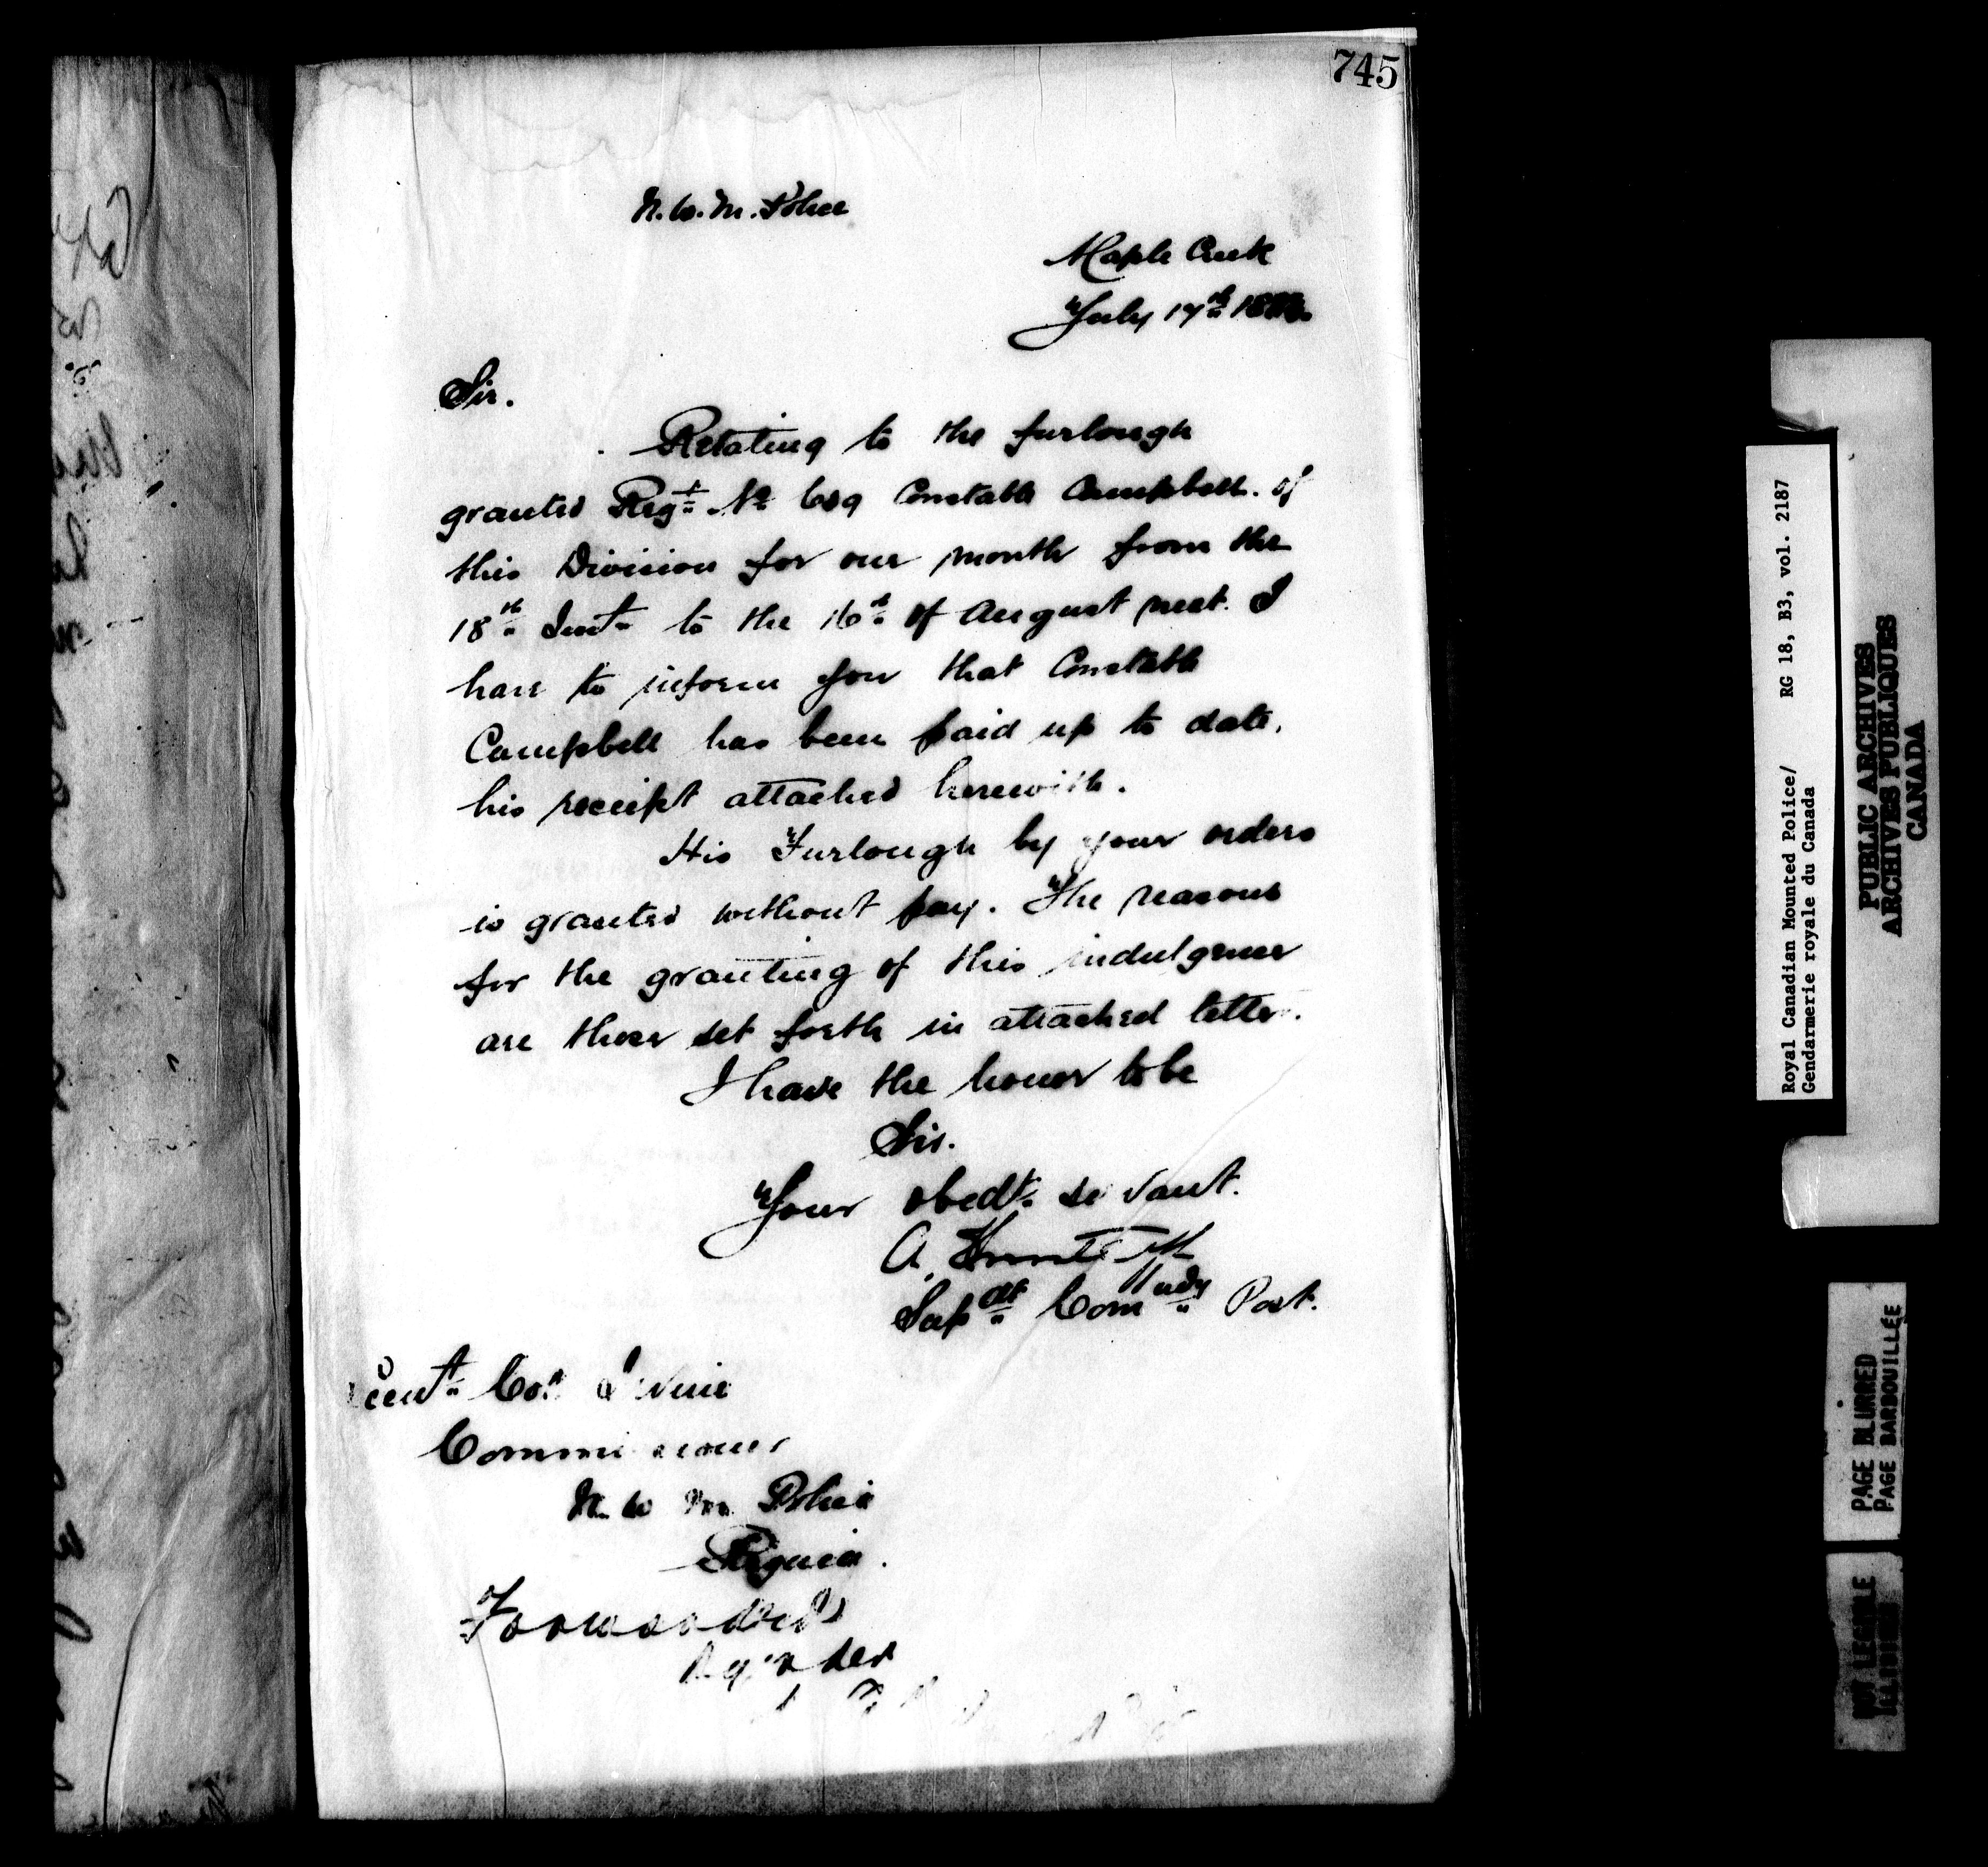 745
N.W.M. Police
Maple Creek
July 17th 188
Sir.
Relating to the furlough
granted Regt No 689 Constable Campbell. of
this Division for one month from the
18th Inst to the 16th of August next. I
have to inform you that Constable
Campbell has been paid up to date,
his receipt attached herewith.
His Furlough by your orders
is granted without pay. The reasons
for the granting of this indulgence
are those set forth in attached letter.
I have the honor to be
Sir.
Your obedt servant.
A.
Supdt Comndg Post.
Lieut Col Irvine
Commissioner
N. W. M. Police
Regina.
Forwarded
Royal Canadian Mounted Police/ RG 18, B3, vol. 2187
Gendarmerie royale du Canada
PUBLIC ARCHIVES
ARCHIVES PUBLIQUES
CANADA
PAGE BLURRED
PAGE BARBOUILLÉE
NOT LEGIBLE